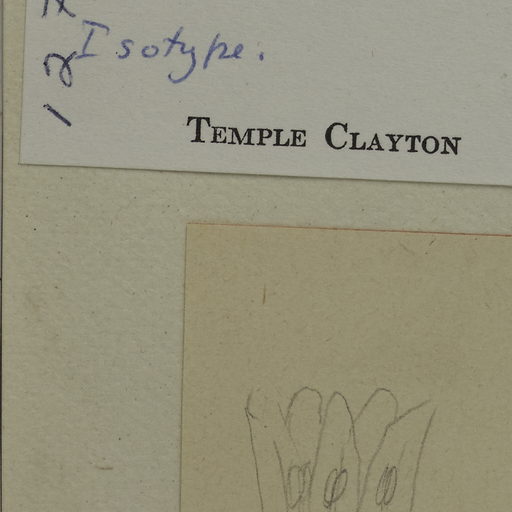 Isotype.
TEMPLE CLAYTON